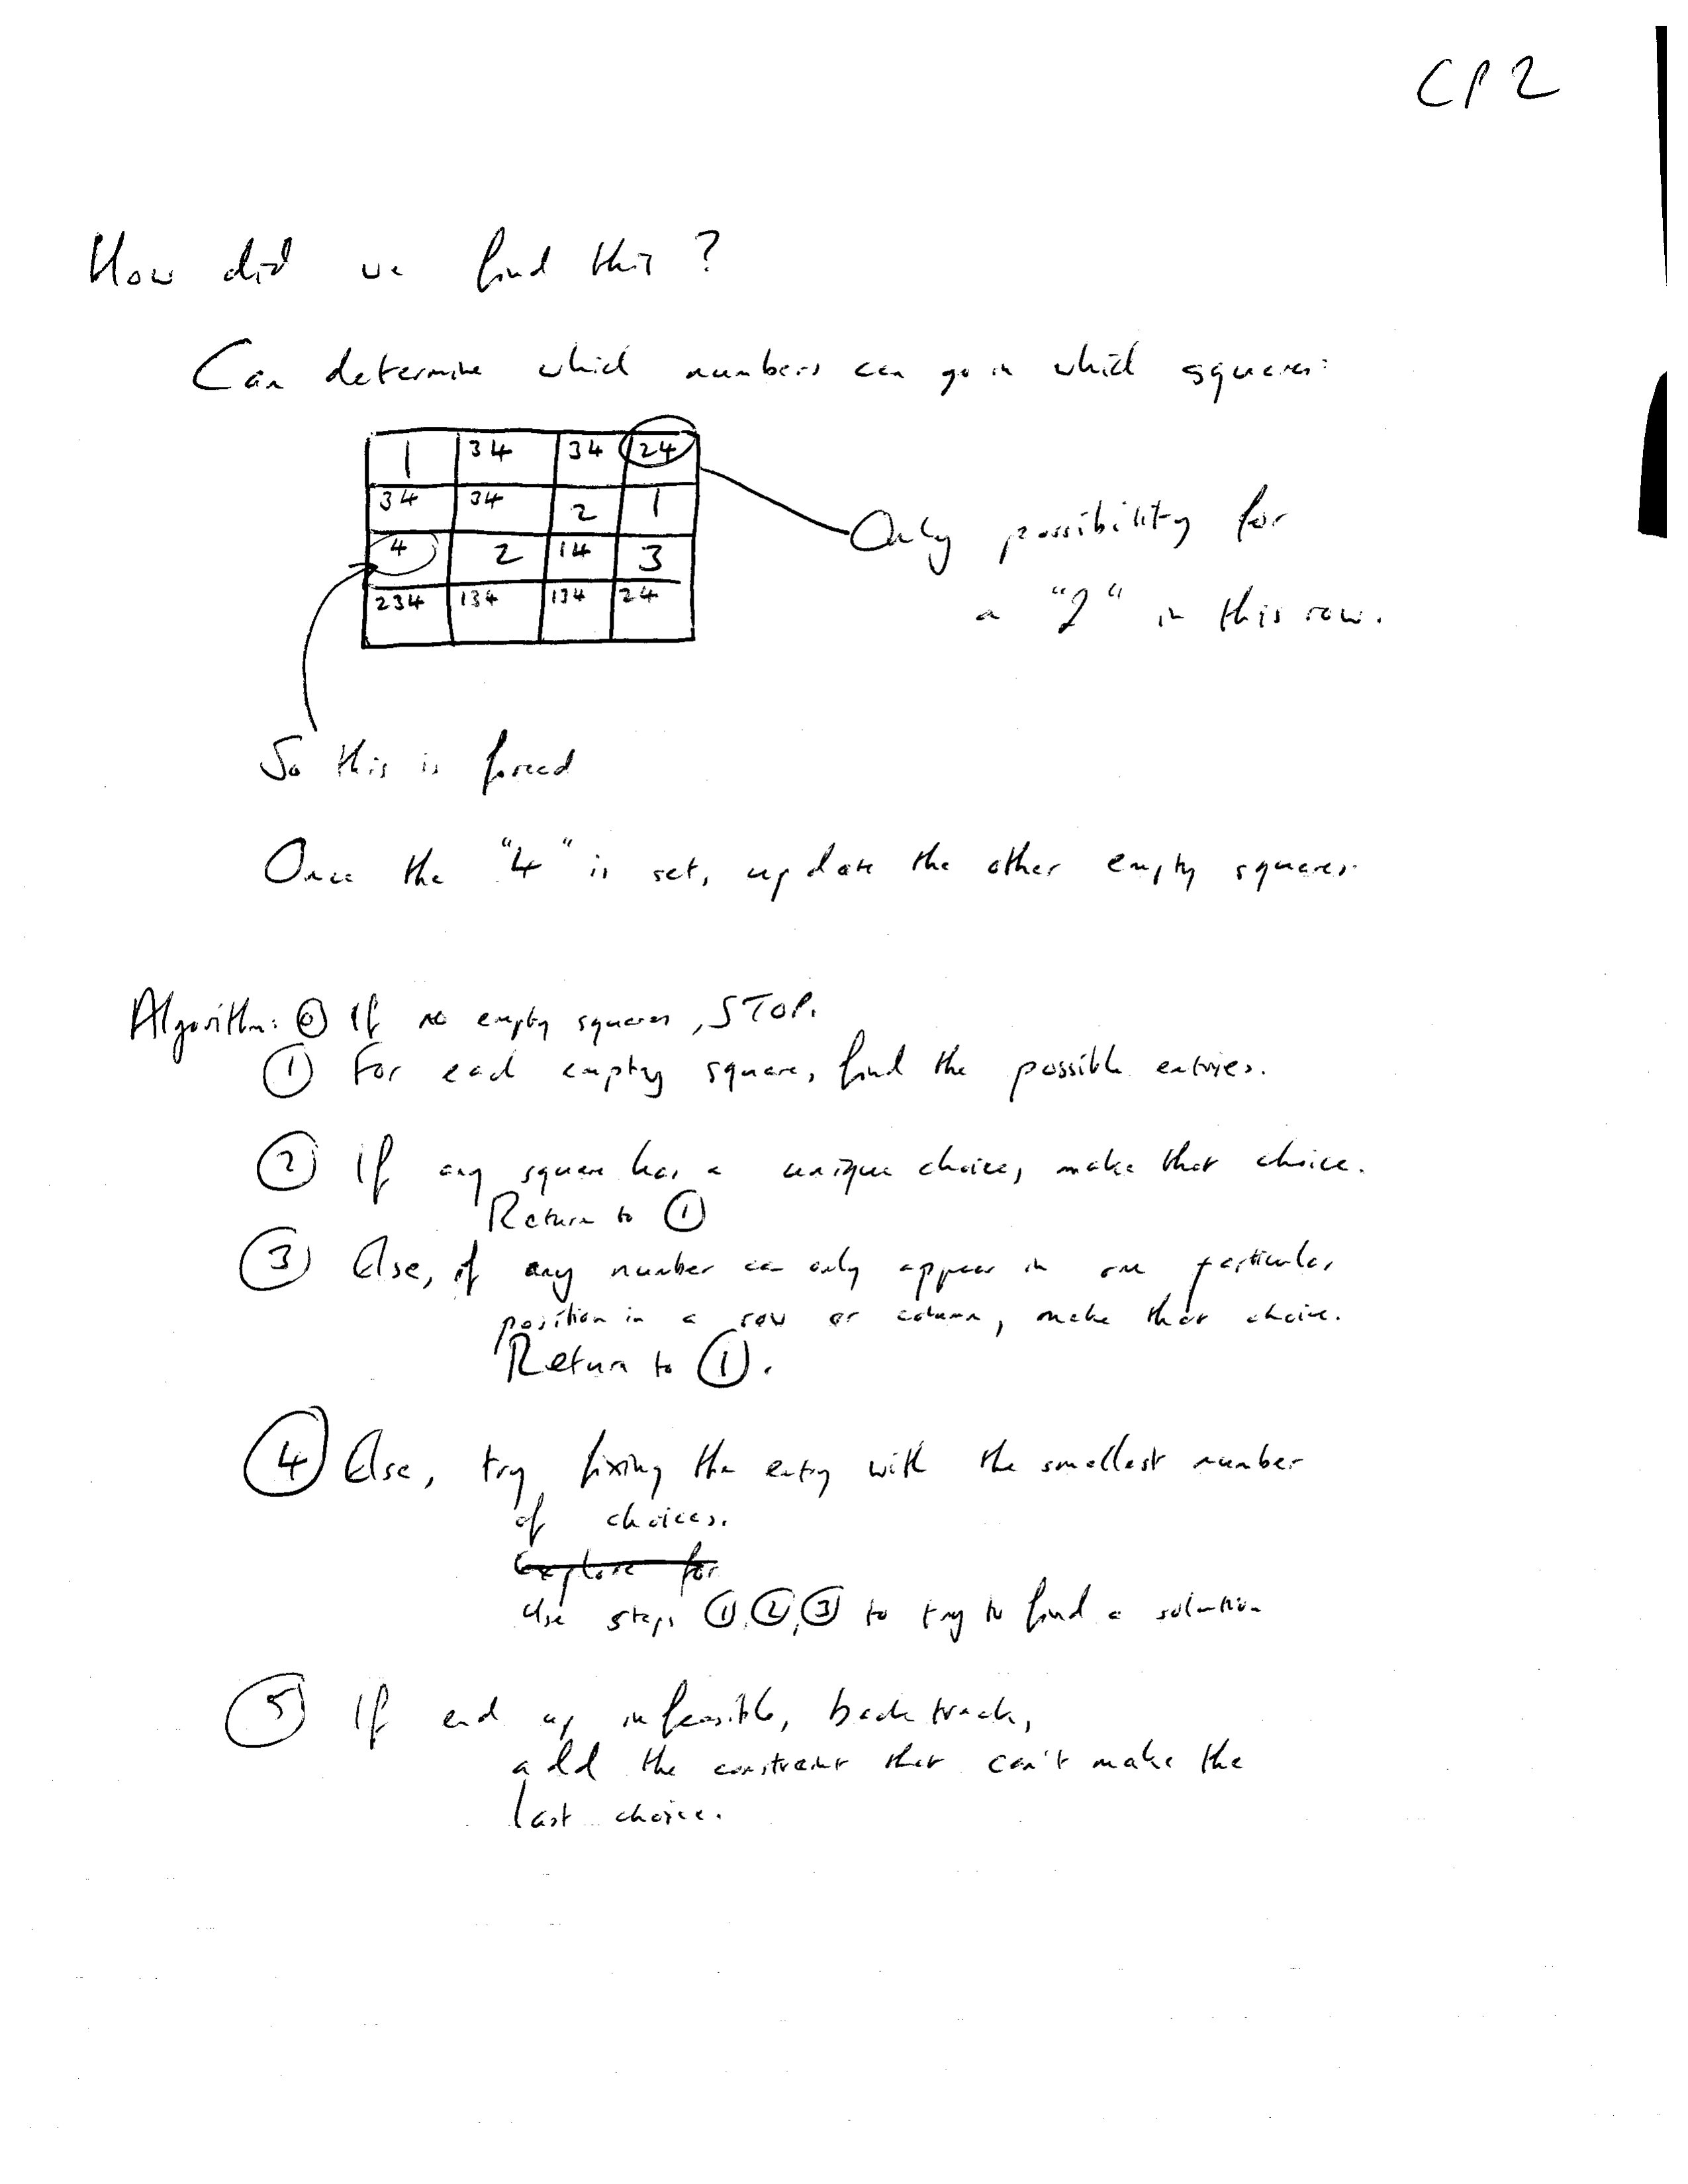 CP2
How did we find this?
Can determine which numbers can go in which squares:
1 34 34 24
34 34 2 1
4 2 14 3
234 134 134 24
Only possibility for
a "2" in this row.
So this is forced
Once the "4" is set, update the other empty squares.
Algorithm: ⓪ If no empty squares, STOP.
① For each empty square, find the possible entries.
② If any square has a unique choice, make that choice.
Return to ①
③ Else, if any number can only appear in one particular
position in a row or column, make that choice.
Return to ①.
④ Else, try fixing the entry with the smallest number
of choices.
Explore for
Use steps ①,②,③ to try to find a solution
⑤ If end up infeasible, backtrack,
add the constraint that can't make the
last choice.